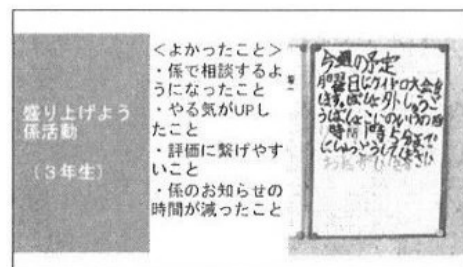 盛り上げよう
係活動
(3年生)
<よかったこと>
・係で相談するよ
うになったこと
・やる気がUPし
たこと
・評価に繋げやす
いこと
・係のお知らせの
時間が減ったこと
今週の予定
月曜日にケイドロ大会を
します。ばしょ外しゅうご
うばしょ
時間 1時5分まで
にしゅうごうしてください
おねがいします